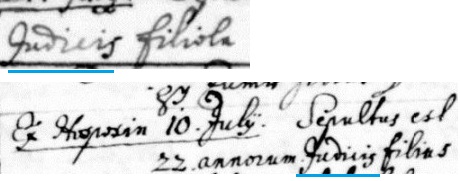 Judicis filiola
Ex Hoposin 10. July. Sepultus est
22 annorum Judicis filius